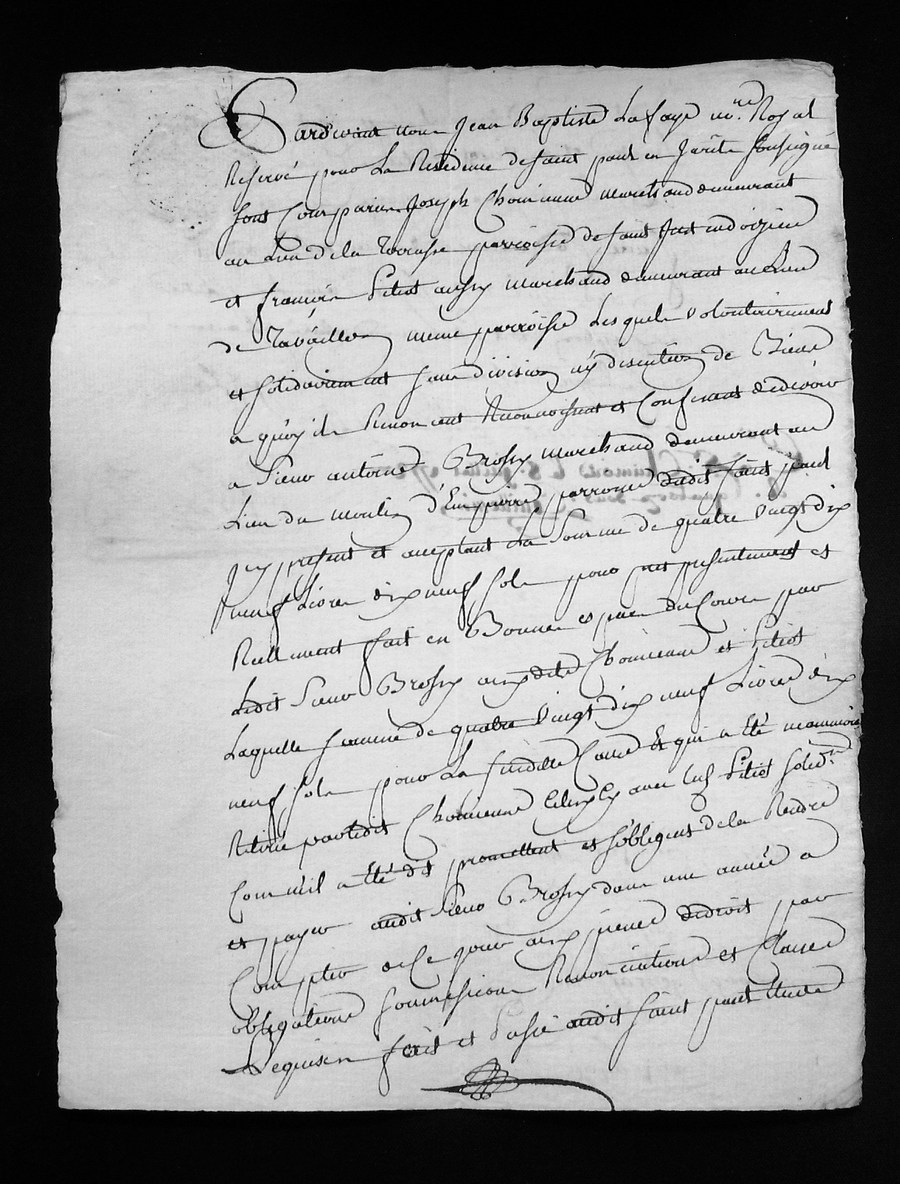 Pardevant nous Jean Baptiste Lafaye nre. Royal
Reservé pour La Residence de saint paul en Jarits soussigné
sont comparus Joseph Chomienne marchand demeurant
au Lieu de la Terrasse parroisse de saint Just endoizieu
et françois Piliot aussy marchand demeurant au Lieu
de meme parroisse Lesquels volontairement
et solidairement sans division ny discution de Biens
a quoy ils Renoncent Reconnoissent et Confessent de devoir
a Sieur antoine Brossy marchand demeurant au
Lieu du moulin parroisse dudit saint paul
Icy present et acceptant La Somme de quatre vingt dix
neuf Livres dix neuf sols pour pret presentement et
Reellement fait en Bonnes especes du Cours par
Ledit Sieur Brossy auxdits Chomienne et Piliot
Laquelle somme de quatre vingt dix neuf Livres dix
neuf sols pour La susditte Cause et qui a été
Retiré par ledit Chomienne avec led. Piliot solidrt.
Comme il a été dit promettent et s'obligent de la Rendre
et payer audit Sieur Brossy dans une année a
Compter de Ce jour aux peines de droit par
obligations soumissions Renonciations et Clauses
Requises fait et Passé audit saint paul